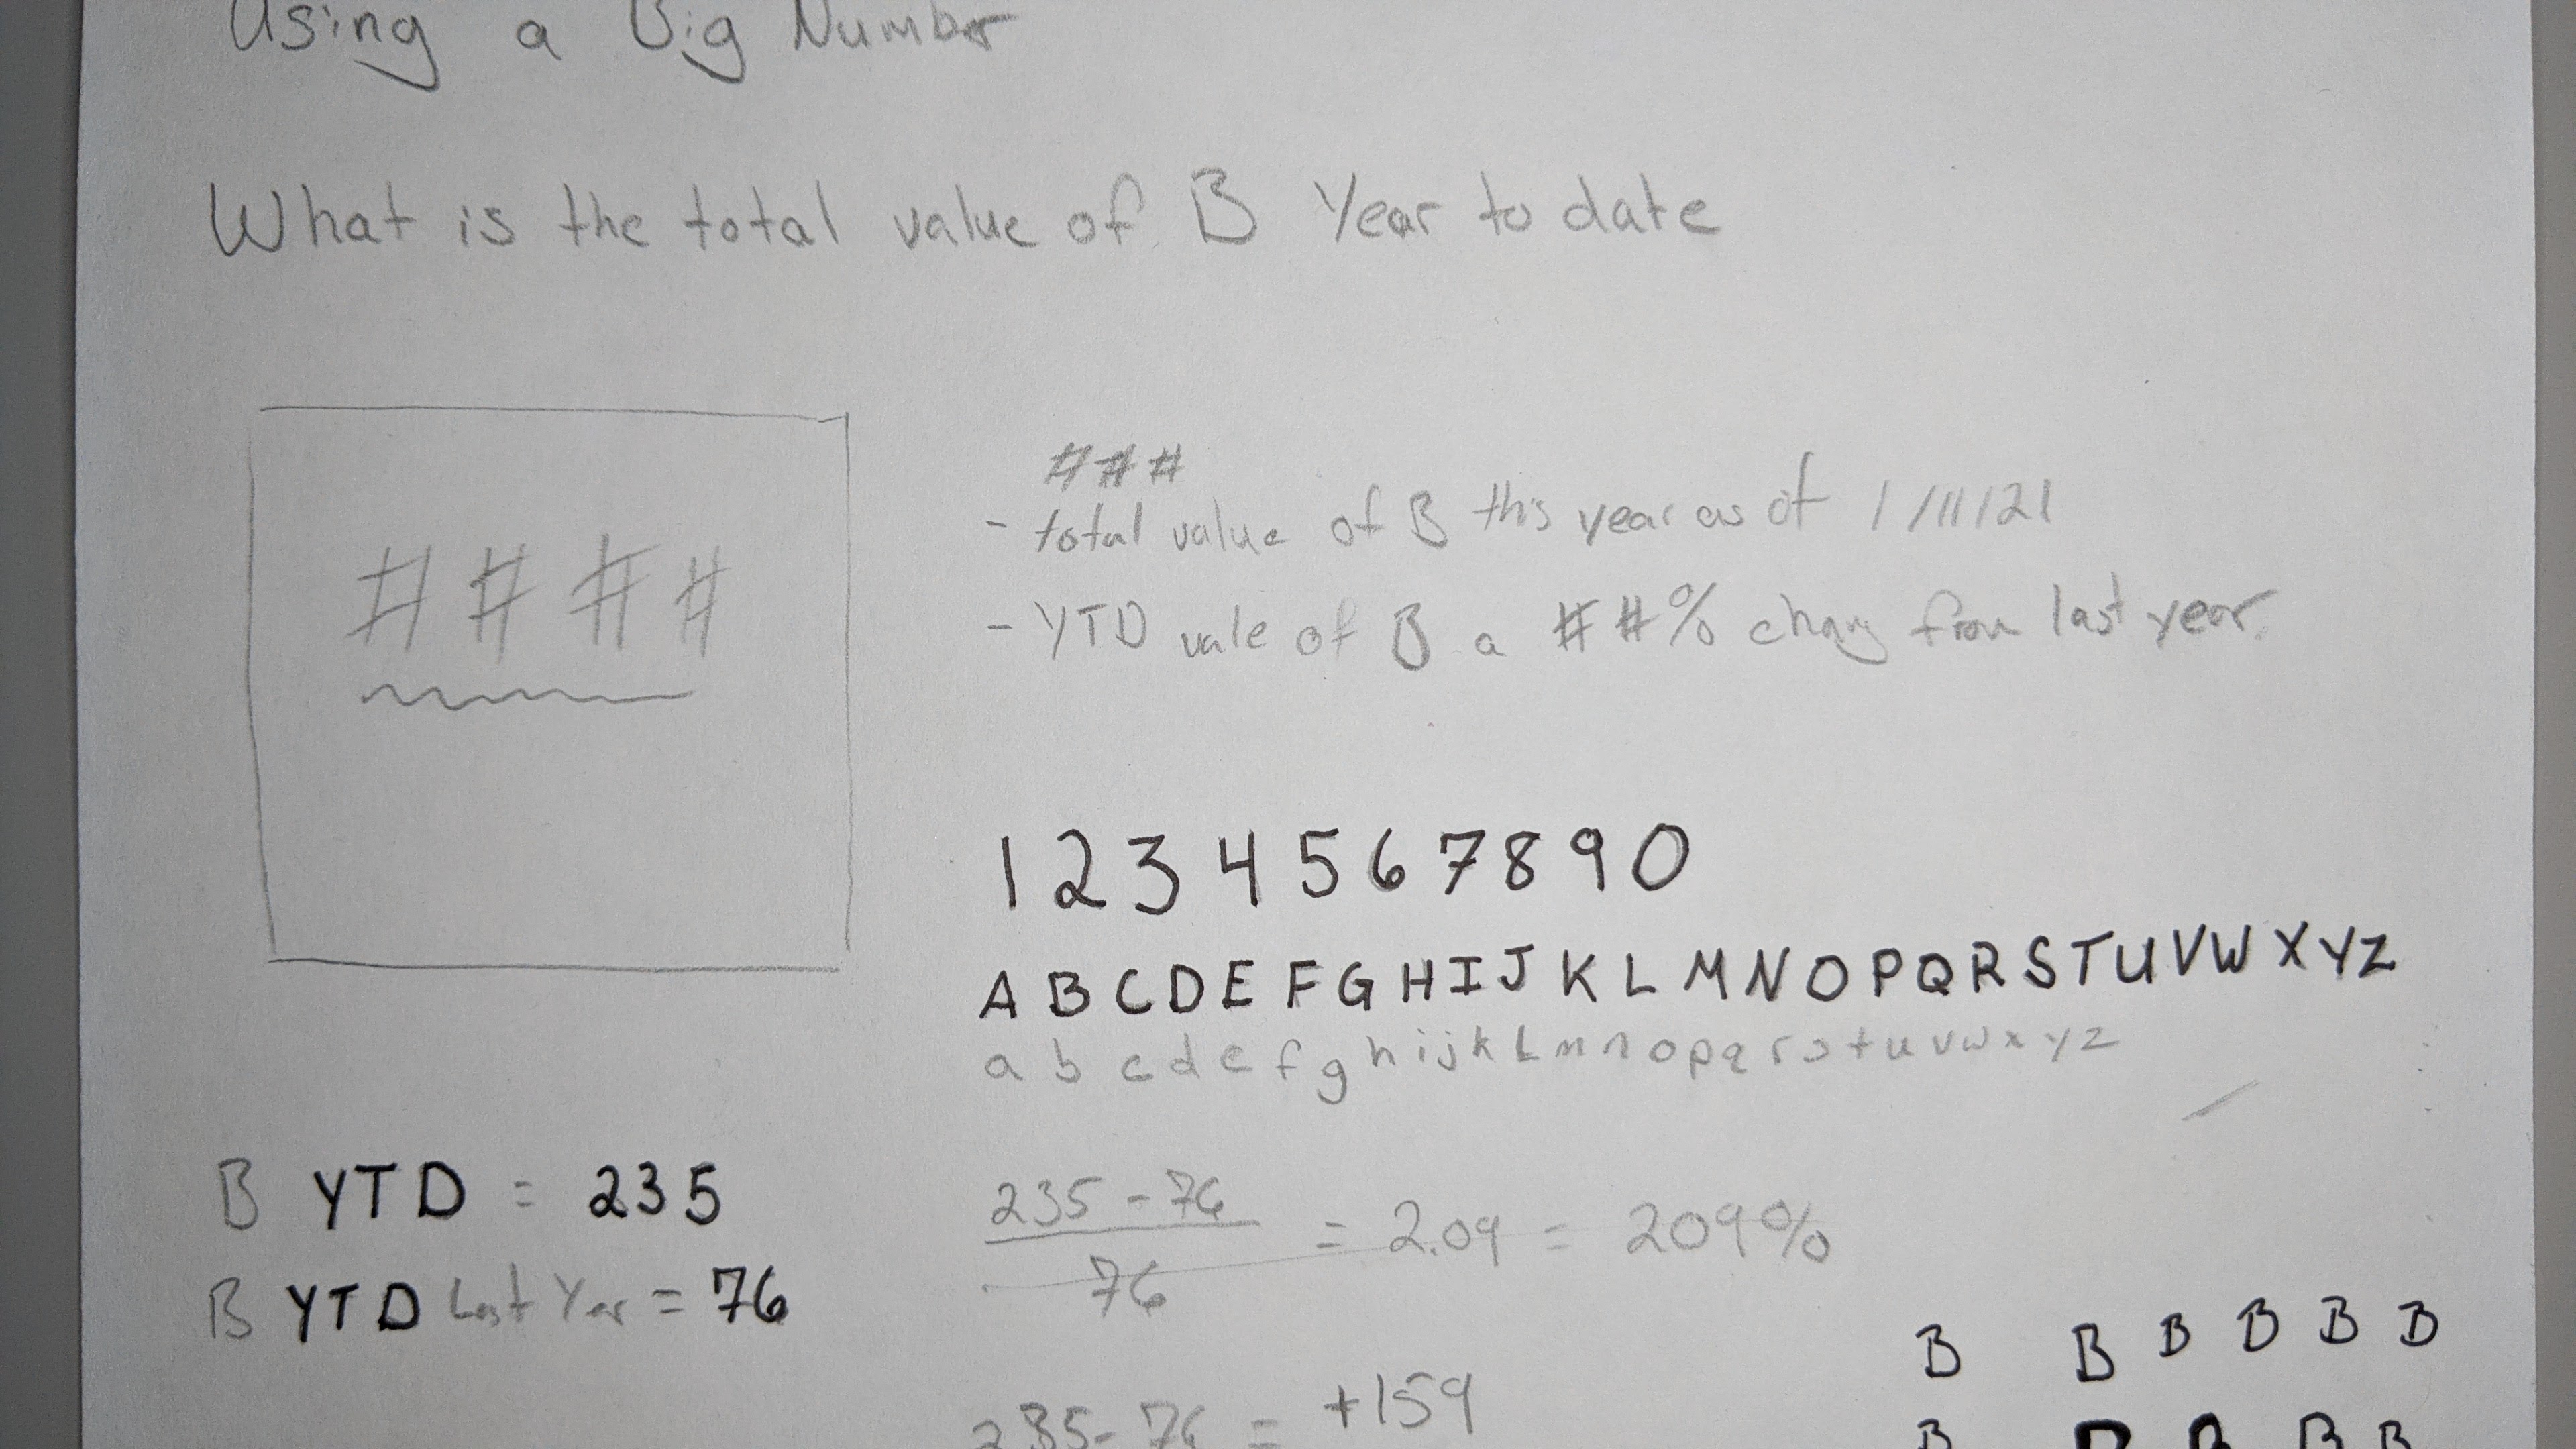 Using a Big Number
What is the total value of B Year to date
####
###
- total value of B this year as of 1/11/21
- YTD vale of B a ##% chang from last year.
1 2 3 4 5 6 7 8 9 0
A B C D E F G H I J K L M N O P Q R S T U V W X Y Z
a b c d e f g h i j k L m n o p q r s t u v w x y z
B YTD = 235
B YTD Last Year = 76
235 - 76
76
= 2.09 = 209%
235 - 76 = +159
B B B B B B
B B B B B